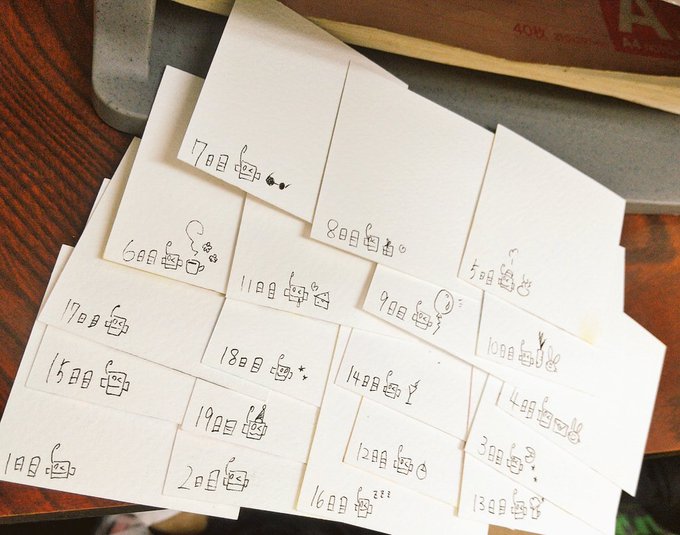 40枚
A
A4
7日目
8日目
5日目
6日目
11日目
9日目
10日目
17日目
18日目
14日目
4日目
15日目
19日目
12日目
3日目
1日目
2日目
16日目
zzz
13日目